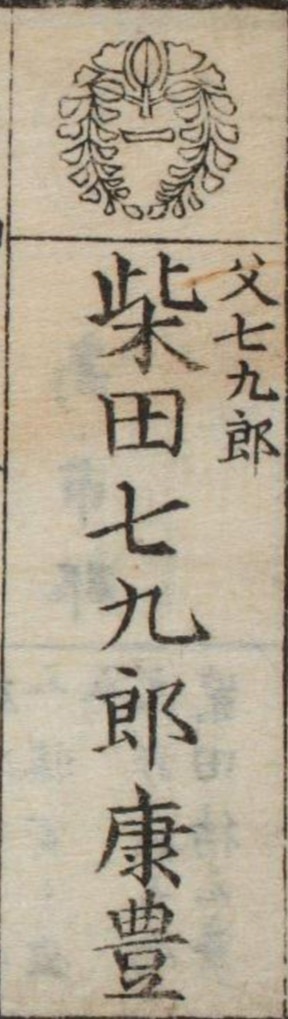 父七九郎
柴田七九郎康豊